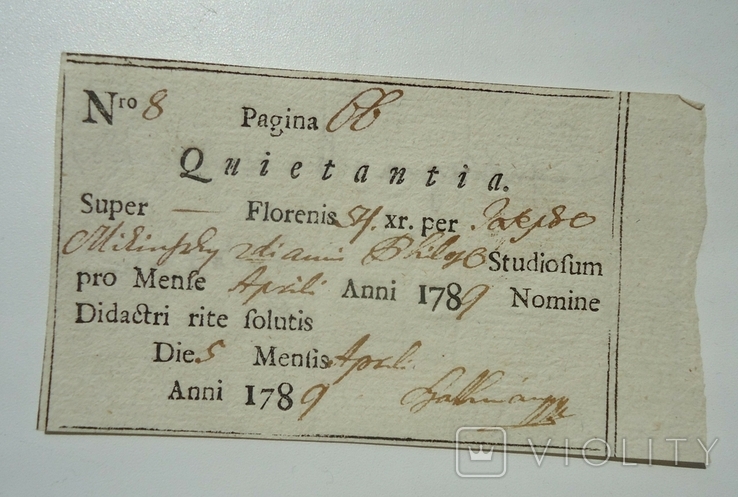 Nro 8 Pagina 66
Quietantia.
Super — Florenis 54. xr. per
Studiosum
pro Mense Aprili Anni 1789 Nomine
Didactri rite solutis
Die 5 Mensis Aprili
Anni 1789
VIOLITY